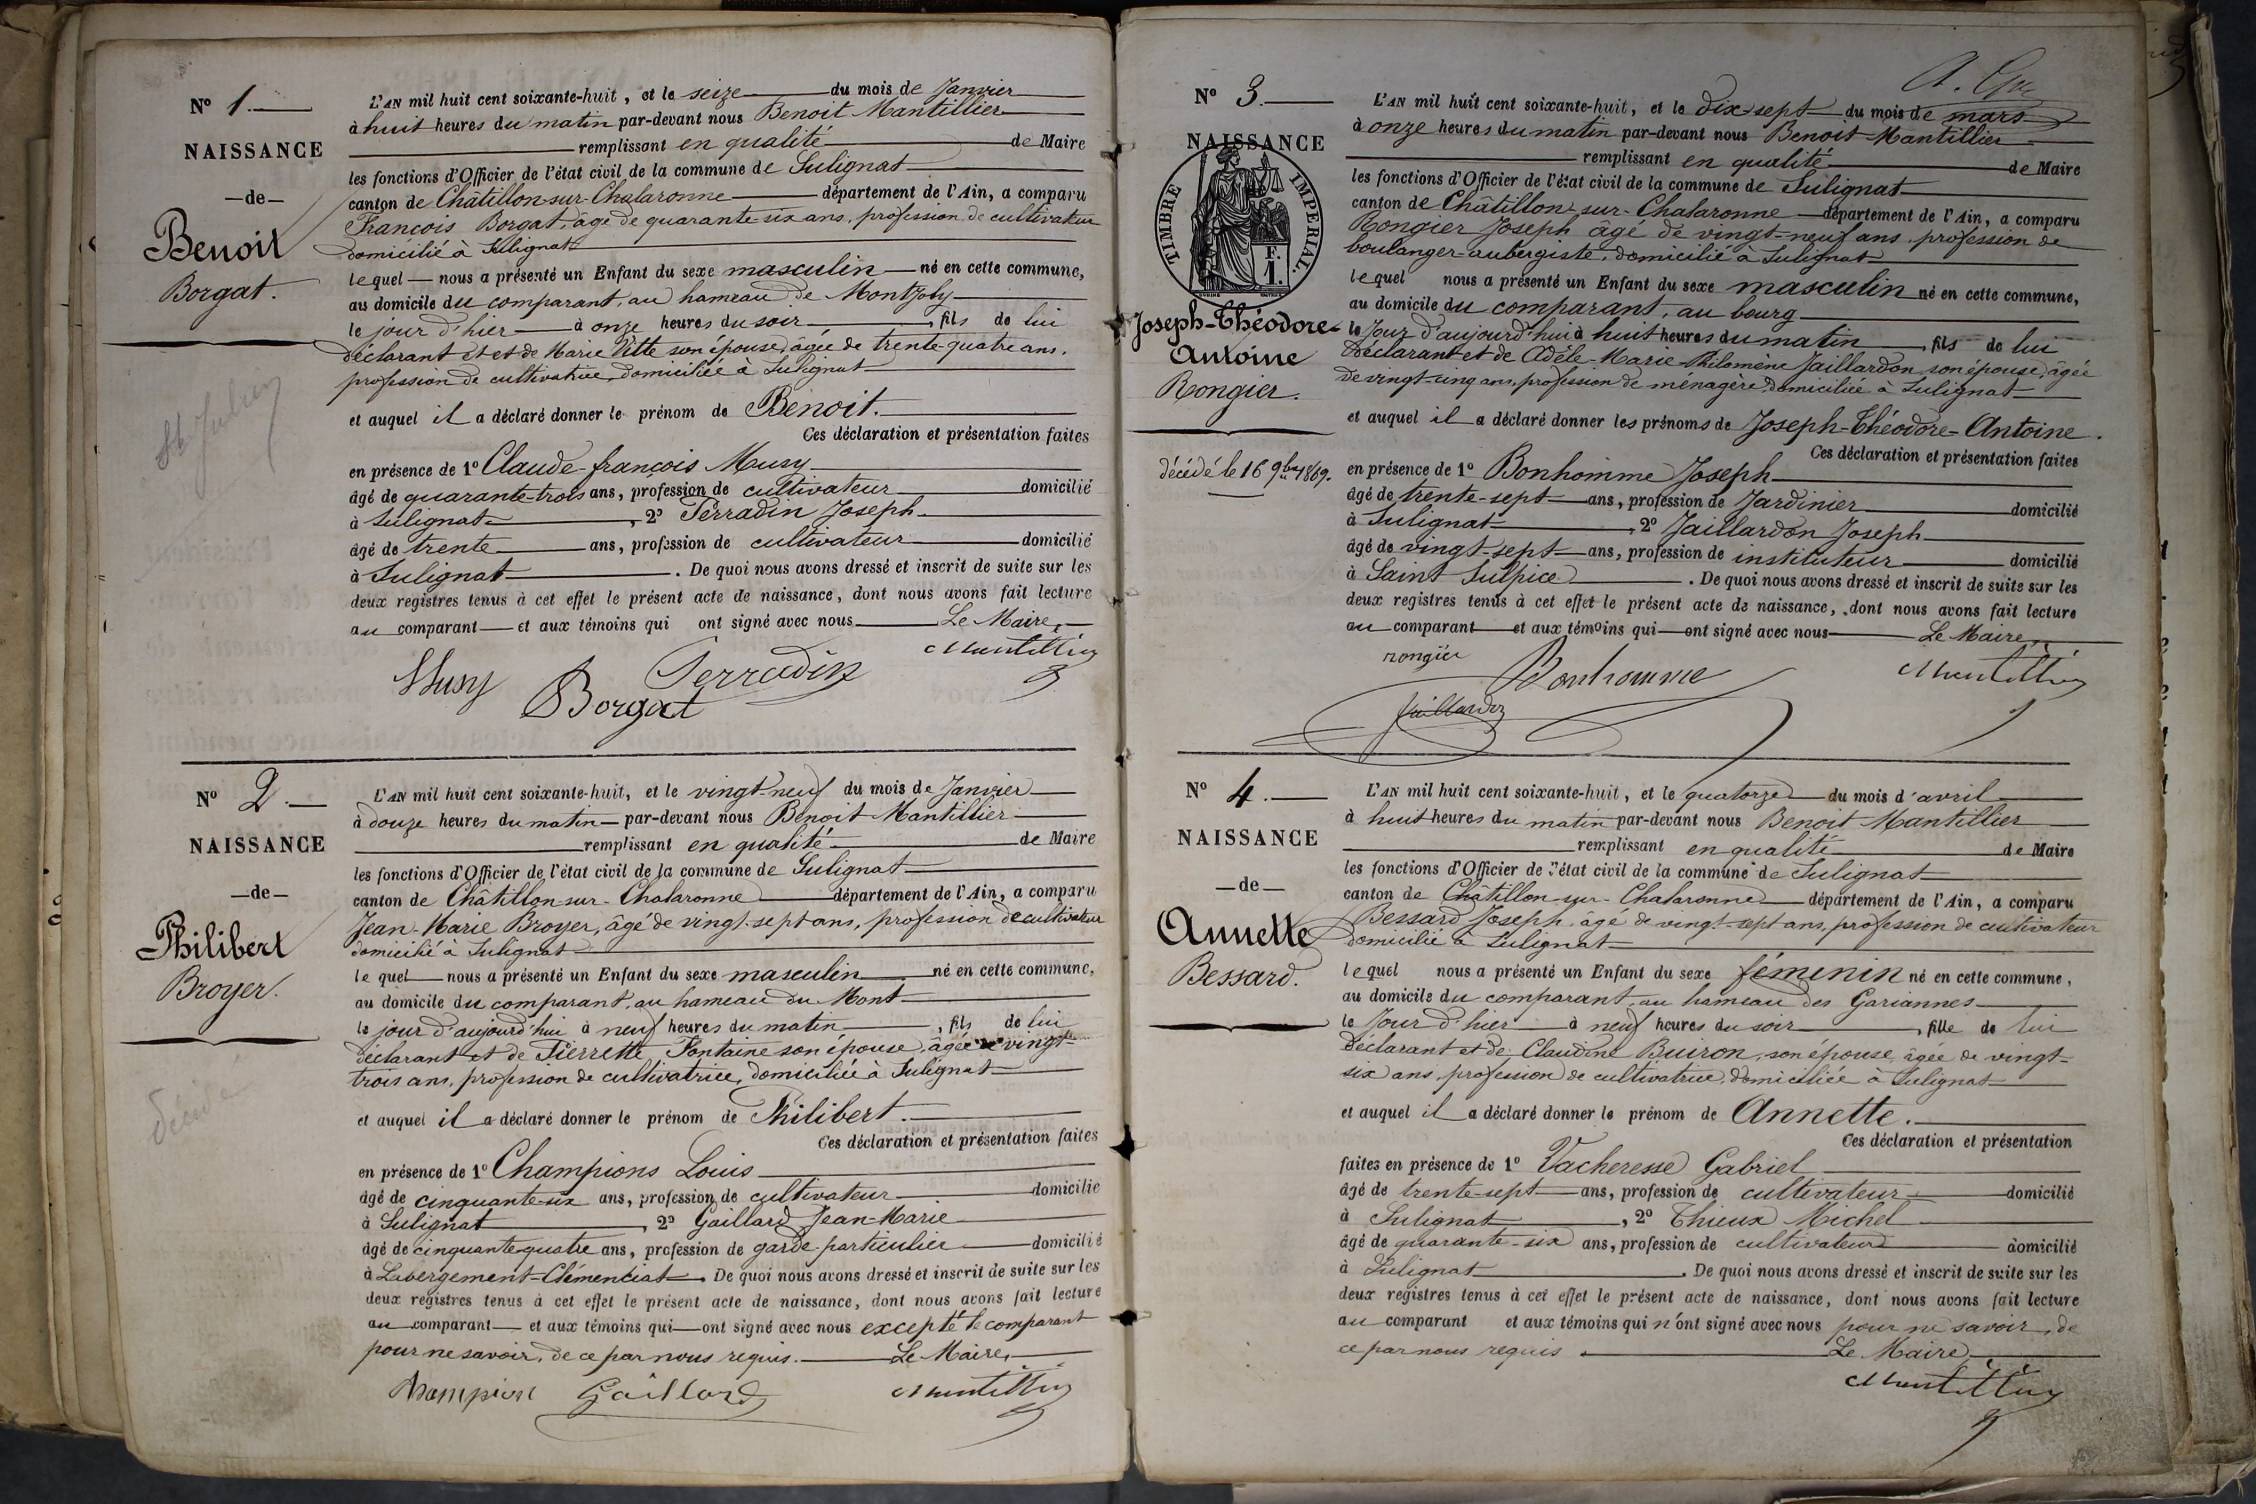 N° 1.
NAISSANCE
—de—
Benoit
Borgat.
L'AN mil huit cent soixante-huit, et le seize du mois de Janvier
à huit heures du matin par-devant nous Benoit Mantillier
remplissant en qualité de Maire
les fonctions d'Officier de l'état civil de la commune de Sulignat
canton de Châtillon-sur-Chalaronne département de l'Ain, a comparu
François Borgat, âgé de quarante six ans, profession de cultivateur
domicilié à Sulignat
lequel nous a présenté un Enfant du sexe masculin né en cette commune,
au domicile du comparant, au hameau de Montjoly
le jour d'hier à onze heures du soir, fils de lui
déclarant et et de Marie Vitte son épouse, âgée de trente-quatre ans,
profession de cultivatrice, domiciliée à Sulignat
et auquel il a déclaré donner le prénom de Benoit.
Ces déclaration et présentation faites
en présence de 1° Claude-françois Musy
âgé de quarante-trois ans, profession de cultivateur domicilié
à Sulignat, 2° Perradin Joseph
âgé de trente ans, profession de cultivateur domicilié
à Sulignat. De quoi nous avons dressé et inscrit de suite sur les
deux registres tenus à cet effet le présent acte de naissance, dont nous avons fait lecture
au comparant et aux témoins qui ont signé avec nous Le Maire,
Musy Borgat Perradin Mantillier
N° 2.
NAISSANCE
—de—
Philibert
Broyer.
décédé
L'AN mil huit cent soixante-huit, et le vingt-neuf du mois de Janvier
à douze heures du matin par-devant nous Benoit Mantillier
remplissant en qualité de Maire
les fonctions d'Officier de l'état civil de la commune de Sulignat
canton de Châtillon-sur-Chalaronne département de l'Ain, a comparu
Jean-Marie Broyer, âgé de vingt-sept ans, profession de cultivateur
domicilié à Sulignat
lequel nous a présenté un Enfant du sexe masculin né en cette commune,
au domicile du comparant, au hameau du Mont
le jour d'aujourd'hui à neuf heures du matin, fils de lui
déclarant et de Pierrette Fontaine son épouse, âgée de vingt-
trois ans, profession de cultivatrice, domiciliée à Sulignat
et auquel il a déclaré donner le prénom de Philibert.
Ces déclaration et présentation faites
en présence de 1° Champions Louis
âgé de cinquante-six ans, profession de cultivateur domicilié
à Sulignat, 2° Gaillard Jean-Marie
âgé de cinquante-quatre ans, profession de garde-particulier domicilié
à Labergement-Clémenciat. De quoi nous avons dressé et inscrit de suite sur les
deux registres tenus à cet effet le présent acte de naissance, dont nous avons fait lecture
au comparant et aux témoins qui ont signé avec nous excepté le comparant
pour ne savoir, de ce par nous requis. Le Maire,
Champion Gaillard Mantillier
N° 3.
NAISSANCE
TIMBRE IMPERIAL.
F.
1.
Joseph-Théodore-
Antoine
Rongier.
décédé le 16 9bre 1869.
L'AN mil huit cent soixante-huit, et le dix-sept du mois de mars
à onze heures du matin par-devant nous Benoit Mantillier
remplissant en qualité de Maire
les fonctions d'Officier de l'état civil de la commune de Sulignat
canton de Châtillon-sur-Chalaronne département de l'Ain, a comparu
Rongier Joseph âgé de vingt-neuf ans, profession de
boulanger-aubergiste, domicilié à Sulignat
lequel nous a présenté un Enfant du sexe masculin né en cette commune,
au domicile du comparant, au bourg
le jour d'aujourd'hui à huit heures du matin, fils de lui
déclarant et de Adèle-Marie-Philomène Jaillardon, son épouse, âgée
de vingt-cinq ans, profession de ménagère domiciliée à Sulignat
et auquel il a déclaré donner les prénoms de Joseph-Théodore-Antoine.
Ces déclaration et présentation faites
en présence de 1° Bonhomme Joseph
âgé de trente-sept ans, profession de Jardinier domicilié
à Sulignat, 2° Jaillardon Joseph
âgé de vingt-sept ans, profession de instituteur domicilié
à Saint Sulpice. De quoi nous avons dressé et inscrit de suite sur les
deux registres tenus à cet effet le présent acte de naissance, dont nous avons fait lecture
au comparant et aux témoins qui ont signé avec nous Le Maire,
rongier Bonhomme Mantillier
Jaillardon
N° 4.
NAISSANCE
—de—
Annette
Bessard.
L'AN mil huit cent soixante-huit, et le quatorze du mois d'avril
à huit heures du matin par-devant nous Benoit Mantillier
remplissant en qualité de Maire
les fonctions d'Officier de l'état civil de la commune de Sulignat
canton de Châtillon-sur-Chalaronne département de l'Ain, a comparu
Bessard Joseph, âgé de vingt-sept ans, profession de cultivateur
domicilié à Sulignat
lequel nous a présenté un Enfant du sexe féminin né en cette commune,
au domicile du comparant, au hameau des Gariannes
le Jour d'hier à neuf heures du soir, fille de lui
déclarant et de Claudine Buiron, son épouse âgée de vingt-
six ans, profession de cultivatrice, domiciliée à Sulignat
et auquel il a déclaré donner le prénom de Annette.
Ces déclaration et présentation
faites en présence de 1° Vacheresse Gabriel
âgé de trente-sept ans, profession de cultivateur domicilié
à Sulignat, 2° Thieux Michel
âgé de quarante-six ans, profession de cultivateur domicilié
à Sulignat. De quoi nous avons dressé et inscrit de suite sur les
deux registres tenus à cet effet le présent acte de naissance, dont nous avons fait lecture
au comparant et aux témoins qui n'ont signé avec nous pour ne savoir, de
ce par nous requis. Le Maire,
Mantillier